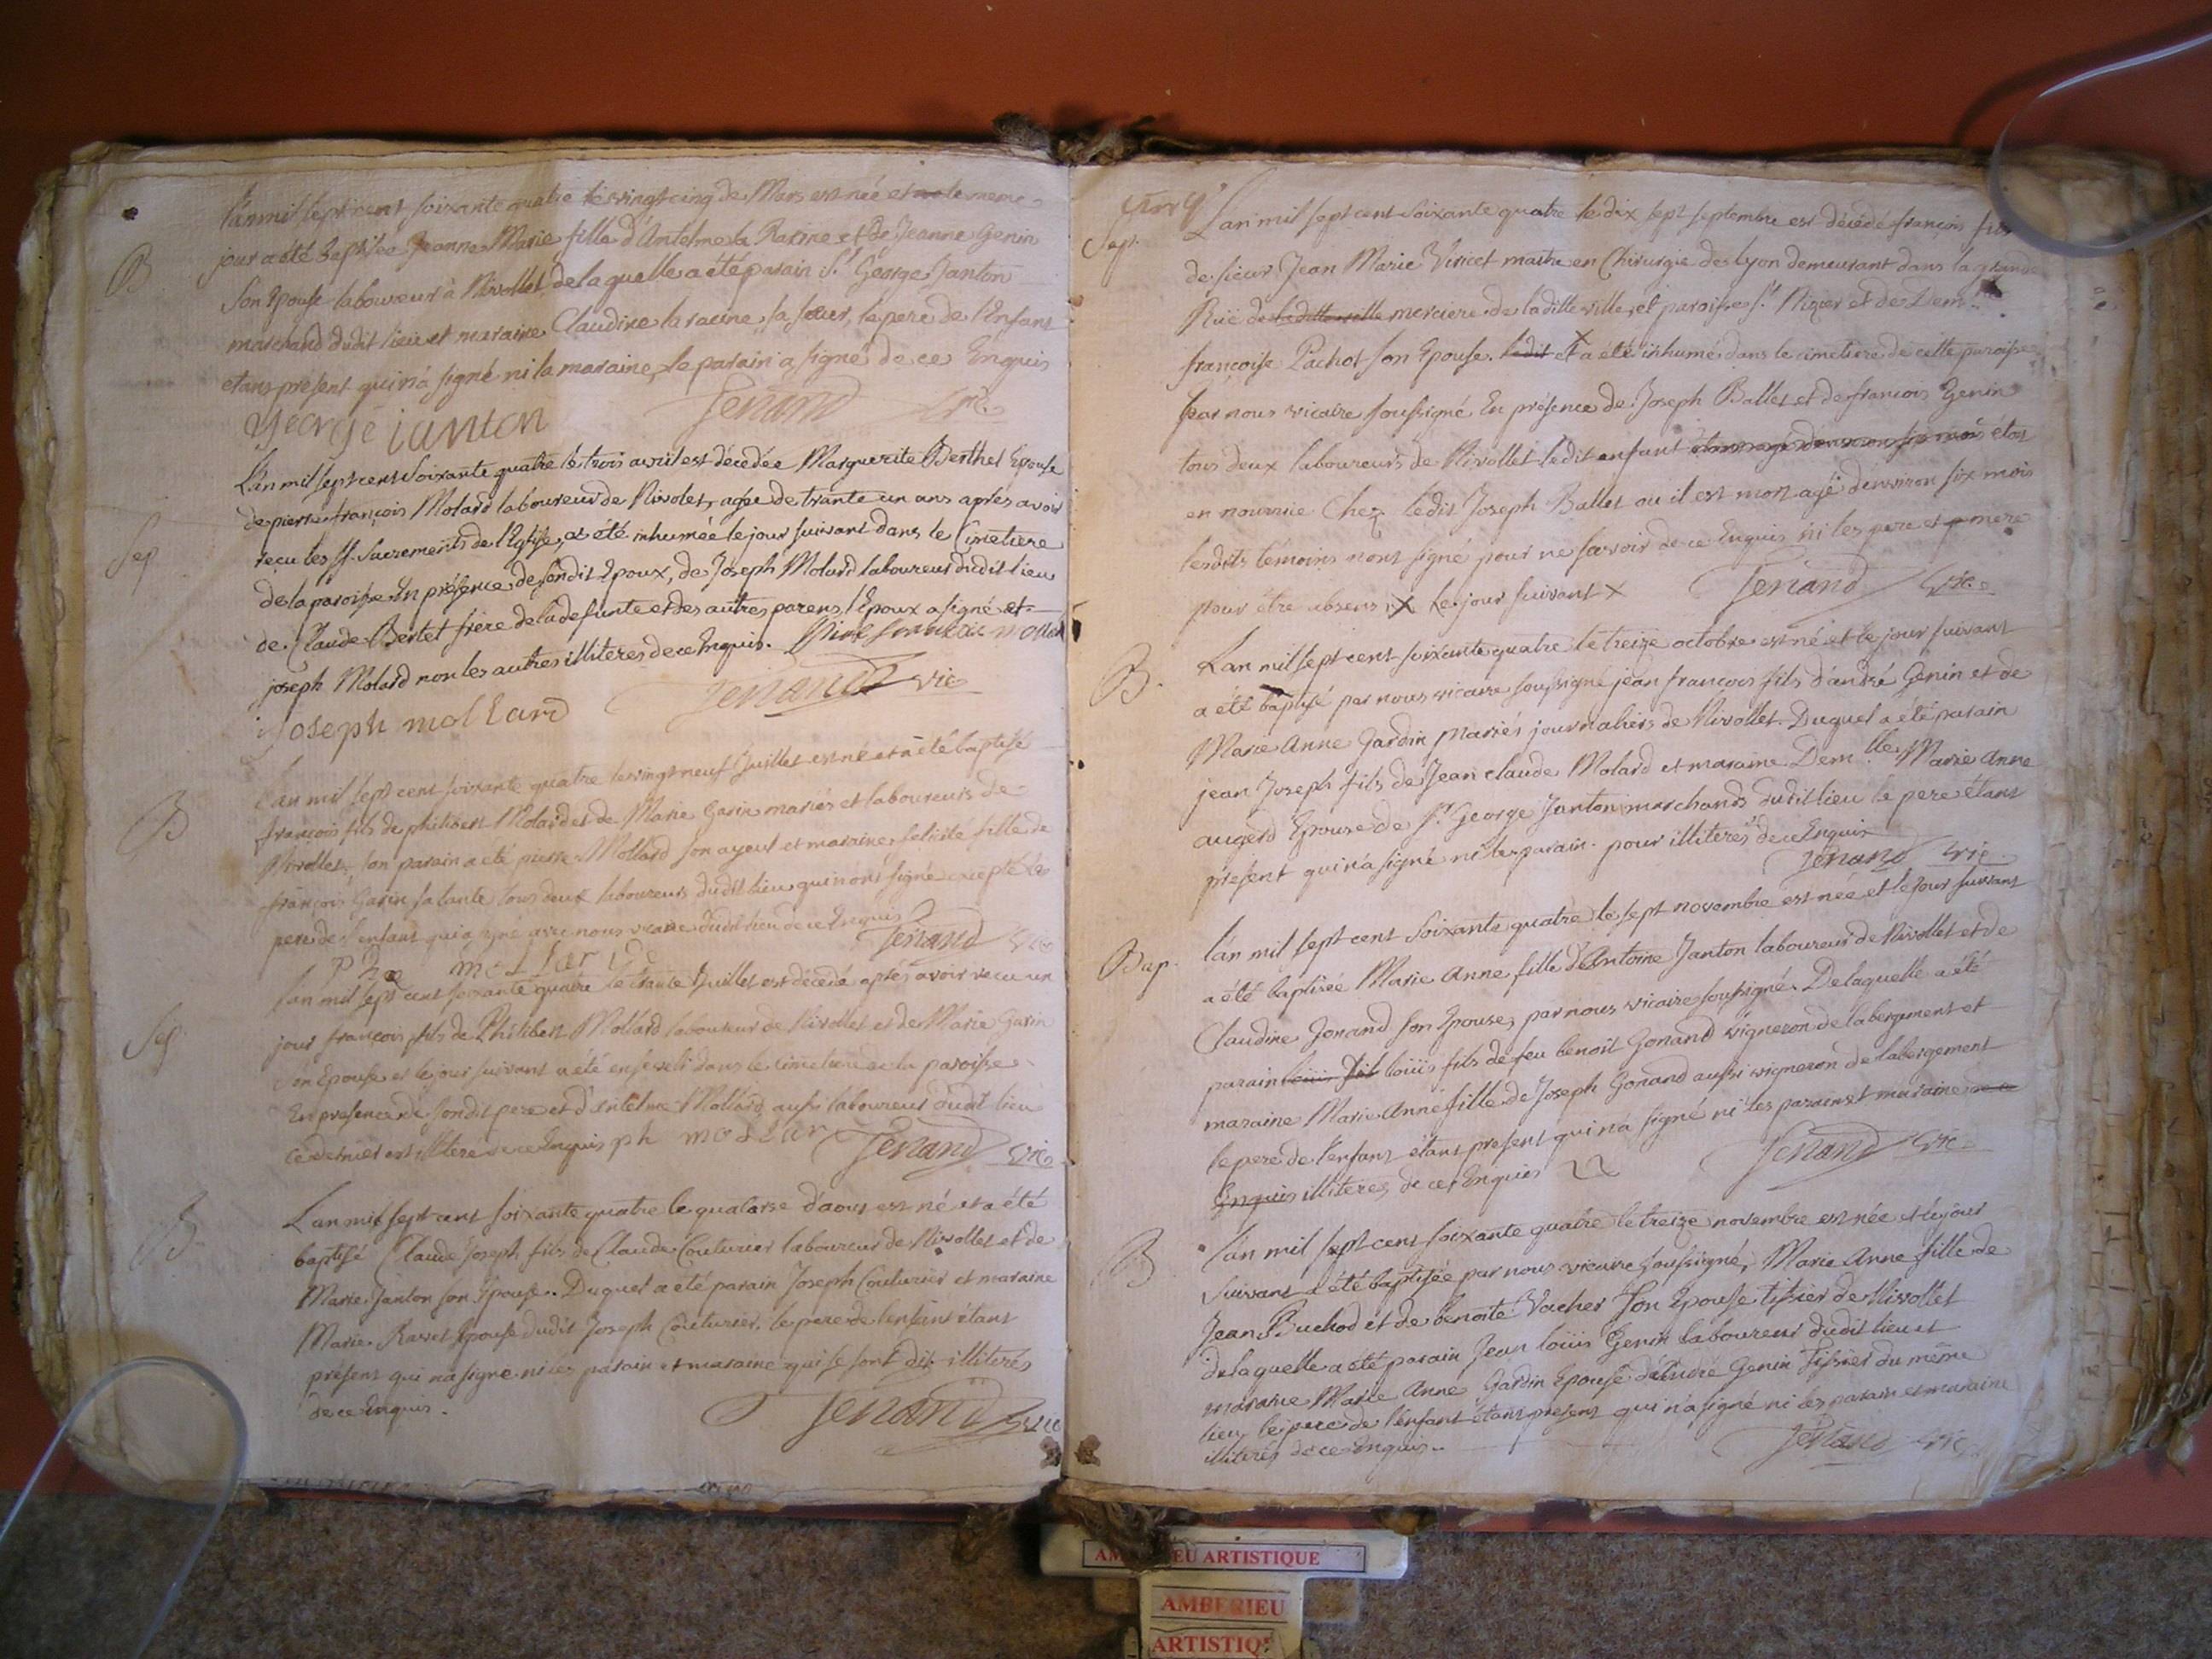 B
L'an mil sept cent soixante quatre le vingt cinq de Mars est née et le meme
jour a été baptisée Jeanne Marie fille d'Antelme la Racine et de Jeanne Genin
son Epouse laboureur à Nivollet, de laquelle a été parain Sr George Janton
marchand dudit lieu et maraine Claudine la racine sa soeur, le pere de l'Enfant
etant présent qui n'a signé ni la maraine, le parain a signé de ce Enquis
George ianton Jenand Vic.
Sep
L'an mil sept cent soixante quatre le trois avril est décédée Marguerite Berthet Epouse
de pierre françois Molard laboureur de Nivolet, agée de trante un ans après avoir
reçu les SS. Sacrements de l'Eglise, a été inhumée le jour suivant dans le Cimetiere
de la paroisse En présence de sondit Epoux, de Joseph Molard laboureur dudit lieu
de Claude Bertet frère de la defunte et des autres parens, l'Epoux a signé et
joseph Molard non les autres illiteres de ce Enquis.
joseph mollard Jenand vic
B
L'an mil sept cent soixante quatre le vingt neuf Juillet est né et a été baptisé
françois fils de philibert Molard et de Marie Garin mariés et laboureurs de
Nivollet, son parain a été pierre Mollard son ayeul et maraine felicité fille de
françois Garin sa tante tous deux laboureurs dudit lieu qui n'ont signé excepté le
pere de l'enfant qui a signé avec nous vicaire dudit lieu de ce Enquis
Jenand Vic
ph mollard
Sep.
L'an mil sept cent soixante quatre le trante Juillet est décédé aprés avoir vecu un
jour françois fils de Philibert Mollard laboureur de Nivollet et de Marie Garin
son Epouse et le jour suivant a été enseveli dans le cimetiere de la paroisse
En presence de sondit pere et d'Antelme Mollard aussi laboureur dudit lieu
ce dernier est illitere de ce Enquis ph mollar Jenand Vic
B
L'an mil sept cent soixante quatre le quatorse d'aout est né et a été
baptisé Claude Joseph fils de Claude Couturier laboureur de Nivollet et de
Marie Janton son Epouse. Duquel a été parain Joseph Couturier et maraine
Marie Ravet Epouse dudit Joseph Couturier. le pere de l'enfant étant
présent qui n'a signé ni les parain et maraine qui se sont dit illiterés
de ce Enquis.
Jenand vic
Sep.
L'an mil sept cent soixante quatre le dix sept septembre est décédé françois fils
de sieur Jean Marie Viricet maitre en Chirurgie de lyon demeurant dans la grande
Ruë de ladite ville merciere de ladite ville, et paroisse St Nizier et de Demlle
françoise Pachot son Epouse. ledit et X a été inhumé dans le cimetiere de cette paroisse
par nous vicaire soussigné En présence de Joseph Ballet et de francois Genin
tous deux laboureurs de Nivollet ledit enfant etant agé d'environ six mois étoit
en nourrice Chez ledit Joseph Ballet ou il est mort agé d'environ six mois
lesdits témoins n'ont signé pour ne savoir de ce Enquis ni les pere et mere
pour être absens, X le jour suivant X Jenand Vic.
B.
L'an mil sept cent soixante quatre le treize octobre est né et le jour suivant
a été baptisé par nous vicaire soussigné jean francois fils d'andré Genin et de
Marie Anne Jardin mariés journaliers de Nivollet. Duquel a été parain
jean Joseph fils de Jean claude Molard et maraine Demlle Marie Anne
augerd Epouse de Sr George Janton marchands dudit lieu le pere étant
present qui n'a signé ni le parain. pour illiteres de ce Enquis
Jenand vic.
Bap.
L'an mil sept cent soixante quatre le sept novembre est née et le jour suivant
a été baptisée Marie Anne fille d'Antoine Janton laboureur de Nivollet et de
Claudine Gonand son Epouse, par nous vicaire soussigné. De laquelle a été
parain louis fils louis fils de feu benoit Gonand vigneron de labergement et
maraine Marie Anne fille de Joseph Gonand aussi vigneron de labergement
le pere de l'enfant étant présent qui n'a signé ni les parain et maraine de ce
Enquis illiteres de ce Enquis Jenand Vic.
B
L'an mil sept cent soixante quatre le treize novembre est née et le jour
suivant a été baptisée par nous vicaire soussigné, Marie Anne fille de
Jean Buchod et de benoite Vacher son Epouse tissier de Nivollet
de laquelle a été parain Jean louis Genin laboureur dudit lieu et
maraine Marie Anne Jardin Epouse d'André Genin Tissier du même
lieu, le pere de l'enfant étant présent qui n'a signé ni les parain et maraine
illiterés de ce Enquis. Jenand vic.
AMBERIEU ARTISTIQUE
AMBERIEU
ARTISTIQUE